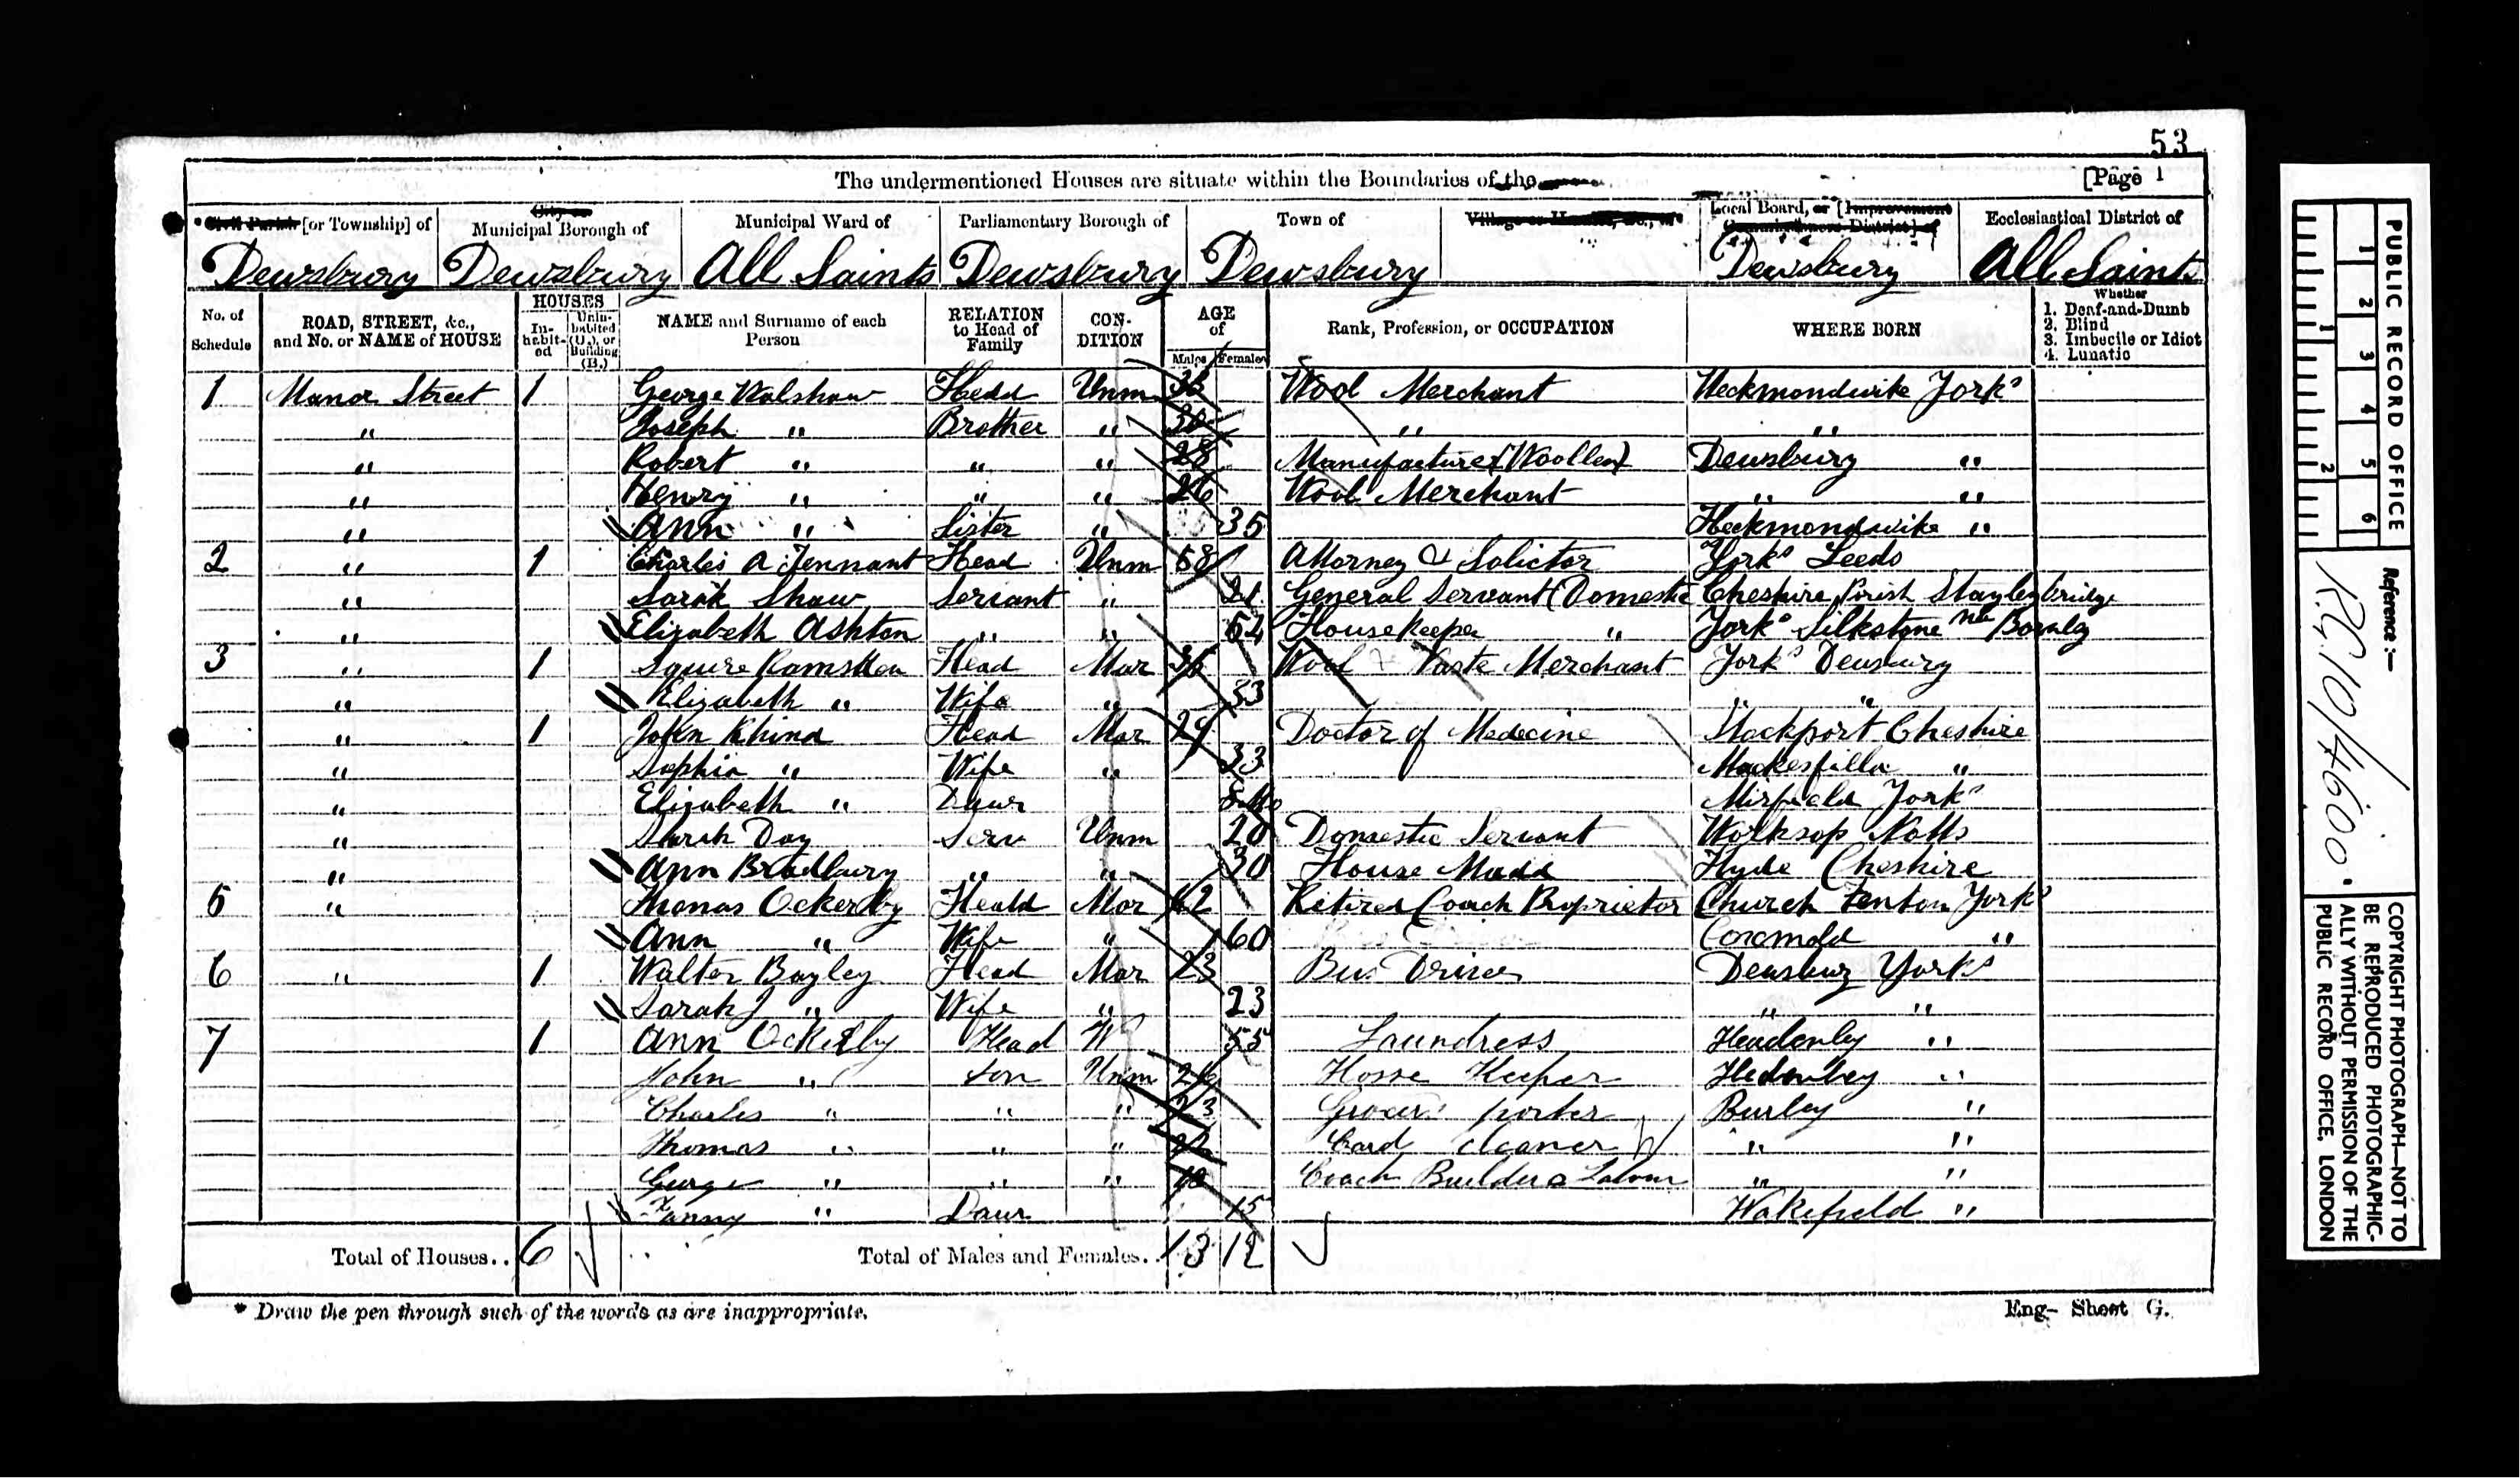 53
The undermentioned Houses are situate within the Boundaries of the
[Page 1
* Civil Parish [or Township] of Dewsbury
City or Municipal Borough of Dewsbury
Municipal Ward of All Saints
Parliamentary Borough of Dewsbury
Town of Dewsbury
Village or Hamlet, &c., of
Local Board, or [Improvement Commissioners District] of Dewsbury
Ecclesiastical District of All Saints
No. of Schedule
ROAD, STREET, &c., and No. or NAME of HOUSE
HOUSES
In-habit-ed
Unin-habited (U.), or Building (B.)
NAME and Surname of each Person
RELATION to Head of Family
CON-DITION
AGE of
Males Females
Rank, Profession, or OCCUPATION
WHERE BORN
Whether
1. Deaf-and-Dumb
2. Blind
3. Imbecile or Idiot
4. Lunatic
1 Manor Street 1 George Walshaw Head Unm Wool Merchant Heckmondwike Yorks
" Joseph " Brother " 30 " "
" Robert " " " 28 Manufacturer (Woollen) Dewsbury "
" Henry " " " 26 Wool Merchant " "
" Ann " Sister " 35 Heckmondwike "
2 " 1 Charles A Tennant Head Unm 58 Attorney & Solicitor Yorks Leeds
" Sarah Shaw Servant " 21 General Servant (Domestic Cheshire Parish Stayleybridge
" Elizabeth Ashton " " 54 Housekeeper " Yorks Silkstone
3 " 1 Squire Ramsden Head Mar 36 Wool & Waste Merchant Yorks Dewsbury
" Elizabeth " Wife " 33 " "
" 1 John Rhind Head Mar 29 Doctor of Medecine Stockport Cheshire
" Sophia " Wife " 33 "
" Elizabeth " Daur Mirfield Yorks
" Sarah Day Serv Unm 20 Domestic Servant Worksop Notts
" Ann Bradbury " " 30 House Maid Hyde Cheshire
5 " Thomas Ockerby Head Mar 62 Retired Coach Proprietor Church Fenton Yorks
" Ann " Wife " 60 "
6 " 1 Walter Bayley Head Mar 23 Bus Driver Dewsbury Yorks
" Sarah J " Wife " 23 " "
7 1 Ann Ockerby Head W 55 Laundress "
John " Son Unm 26 Horse Keeper "
Charles " " " 23 Grocers porter Burley "
Thomas " " " Card Cleaner " "
George " " " Coach Builders Labour " "
Fanny " Daur 15 Wakefield "
Total of Houses.. 6
Total of Males and Females.. 13 12
* Draw the pen through such of the words as are inappropriate.
Eng- Sheet G.
PUBLIC RECORD OFFICE
1 2 3 4 5 6
1 2
Reference :-
R.G. 10/4600
COPYRIGHT PHOTOGRAPH—NOT TO
BE REPRODUCED PHOTOGRAPHIC-
ALLY WITHOUT PERMISSION OF THE
PUBLIC RECORD OFFICE, LONDON